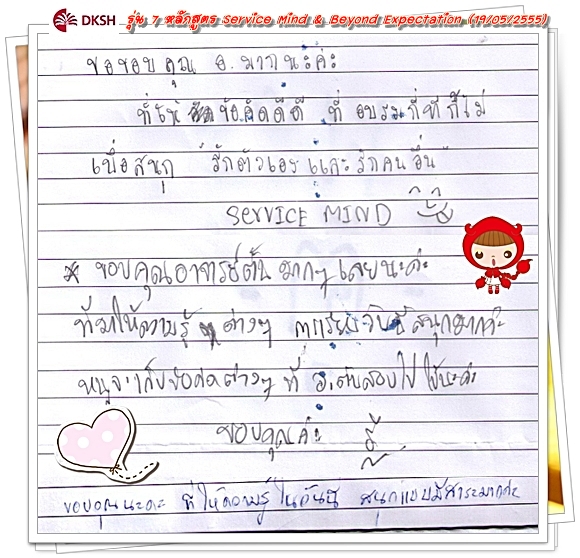 DKSH รุ่น 7 หลักสูตร Service Mind & Beyond Expectation (19/05/2555)
ขอขอบคุณ อ. มากนะค่ะ
ที่ให้ ข้อคิดดีดี ที่อบรมกี่ทีก็ไม่
เบื่อสนุก "รักตัวเองและรักคนอื่น"
SERVICE MIND
* ขอบคุณอาจารย์ต้น มากๆ เลยนะค่ะ
ที่มาให้ความรู้ ต่างๆ สนุกมากค่ะ
หนูจะเก็บข้อคิดต่างๆ ที่ อ.ต้นสอนไปใช้นะค่ะ
ขอบคุณค่ะ
ขอบคุณนะคะ ที่ให้ความรู้ในวันนี้ สนุกแบบมีสาระมากค่ะ